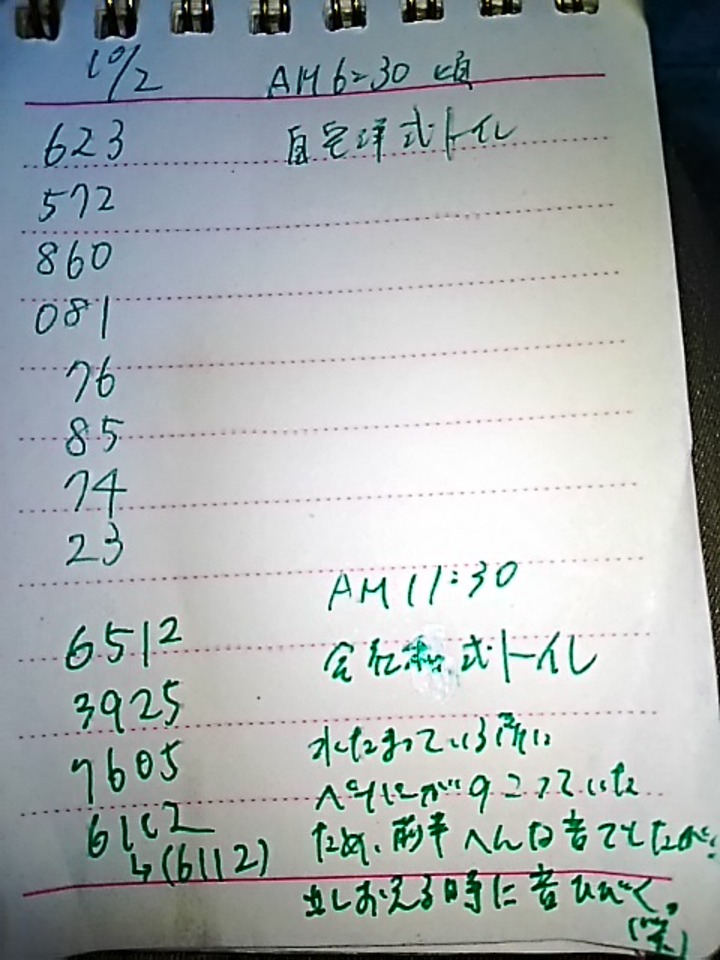 10/2 AM6:30 頃
623 自宅洋式トイレ
572
860
081
76
85
74
23
AM11:30
6512 会社和式トイレ
3925
水たまっている所に
7605
ペーパーがのこっていた
6112
ため、前半へんな音でしたが、
↳(6112)
出しおえる時に音ひびく。
(笑)